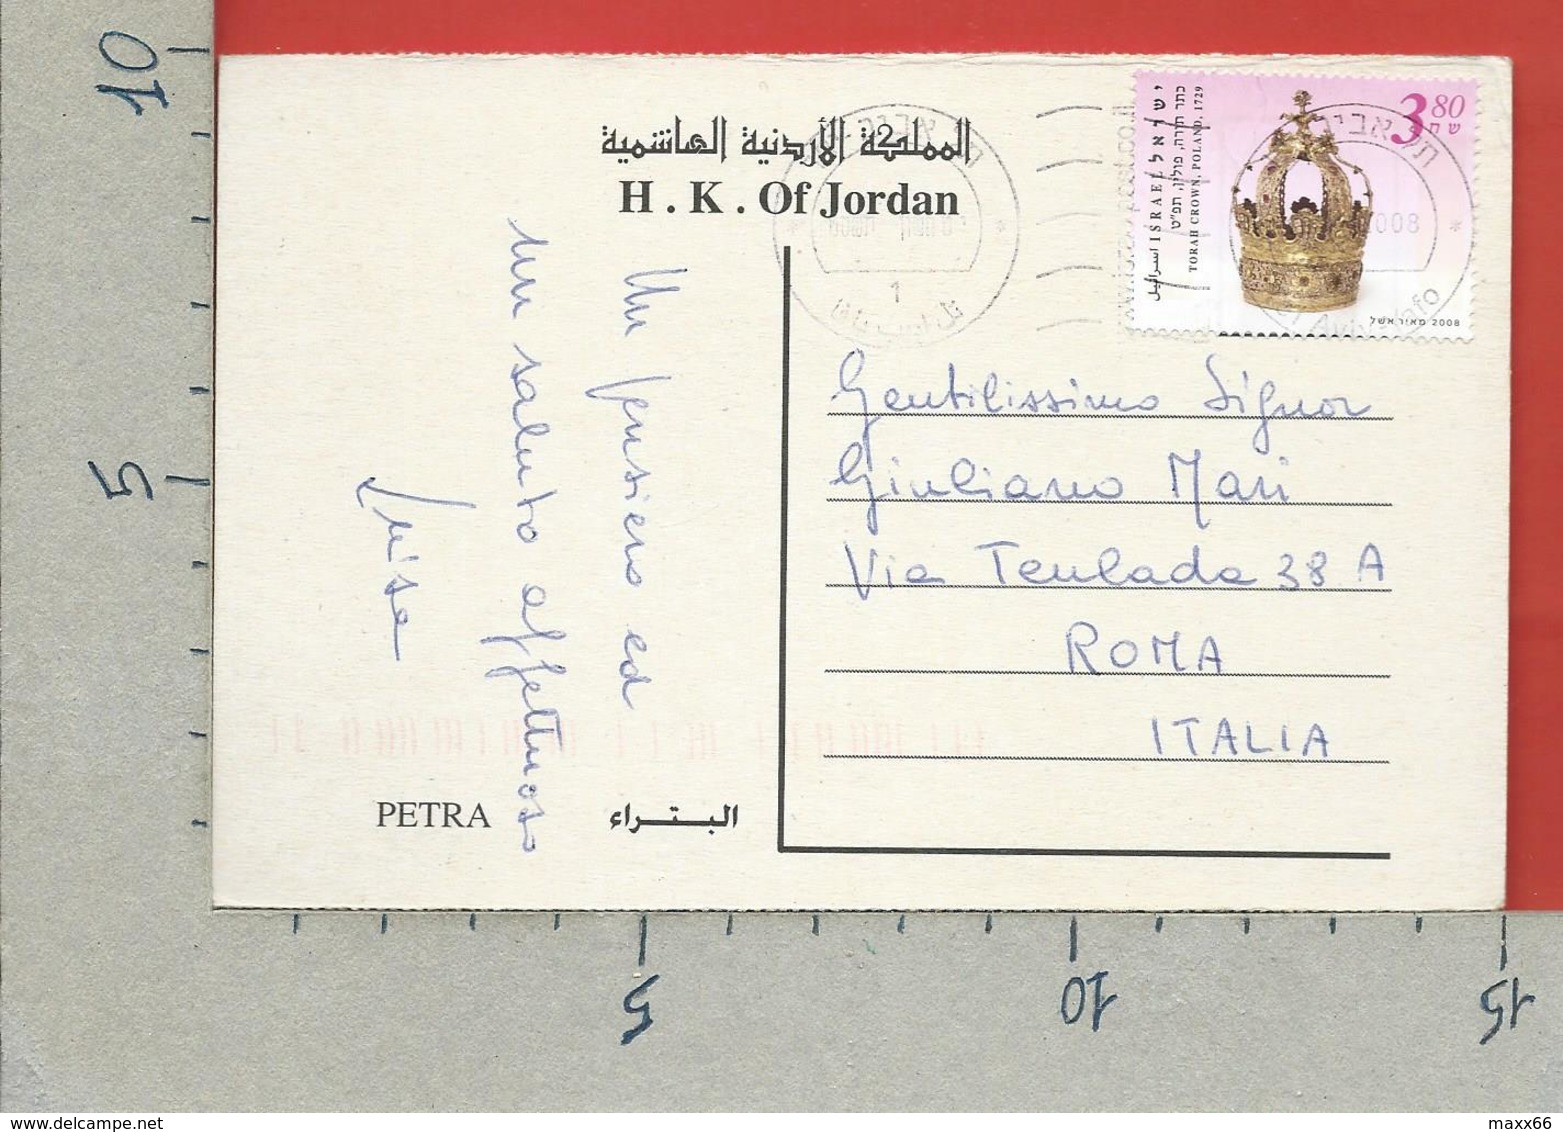 10
5
المملكة الأردنية الهاشمية
H . K . Of Jordan
ישראל ISRAEL اسرائيل
כתר תורה, פולין, תפ"ט
TORAH CROWN, POLAND, 1729
3.80
ש"ח
מאיר אשל 2008
2008
1
Un pensiero ed
un saluto affettuoso
Luisa
Gentilissimo Signor
Giuliano Mari
Via Teulada 38 A
ROMA
ITALIA
PETRA
البتراء
5
10
15
delcampe.net
maxx66